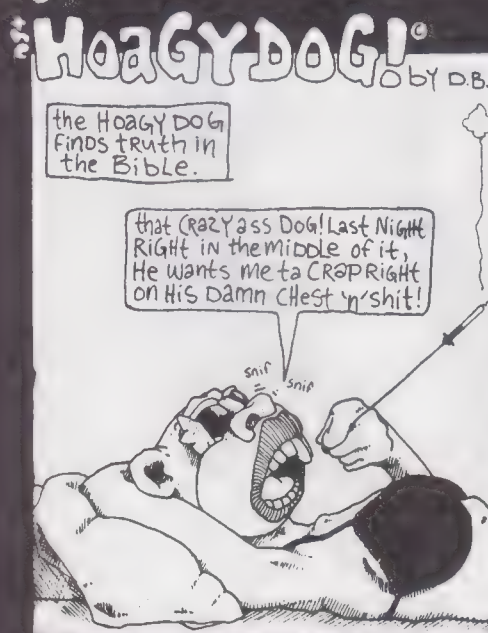 HOAGY DOG! ©
by D.B.
the HOAGY DOG
FINDS tRutH in
the BiBLe.
that CRaZY ass DOG! Last NiGHt
RiGHt iN the miDDLe of it,
He wants me ta CRaP RiGHt
on His Damn CHest 'n' shit!
snif
snif